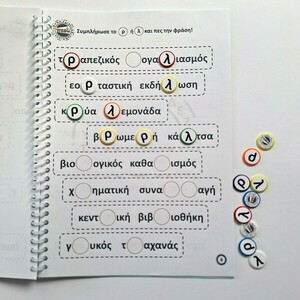 Συμπλήρωσε το ρ ή λ και πες την φράση!
τραπεζικός ογαλιασμός
εορταστική εκδήλωση
κρύα λεμονάδα
βρωμερή κάλτσα
βιο ογικός καθα ισμός
χ ηματική συνα αγή
κεντ ική βιβ ιοθήκη
γ υκός τ αχανάς
ρ
λ
ρ
λ
λ